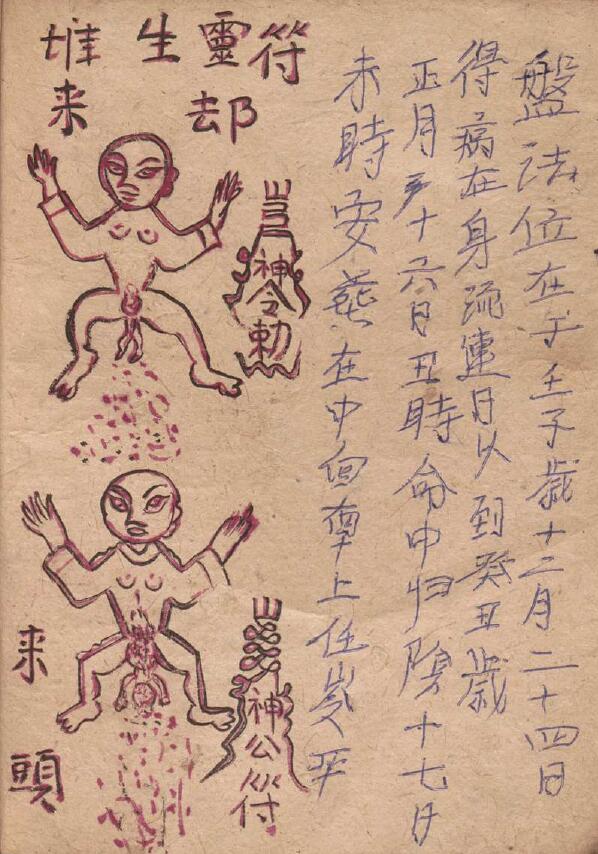 盤法位在于壬子歲十二月二十四日
得病在身流連日以到癸丑歲
正月于十六日丑時命中归陰十七日
未時安葬在中向上任岁平
堆生靈符
来 却
神令勅
来
頭
神公符